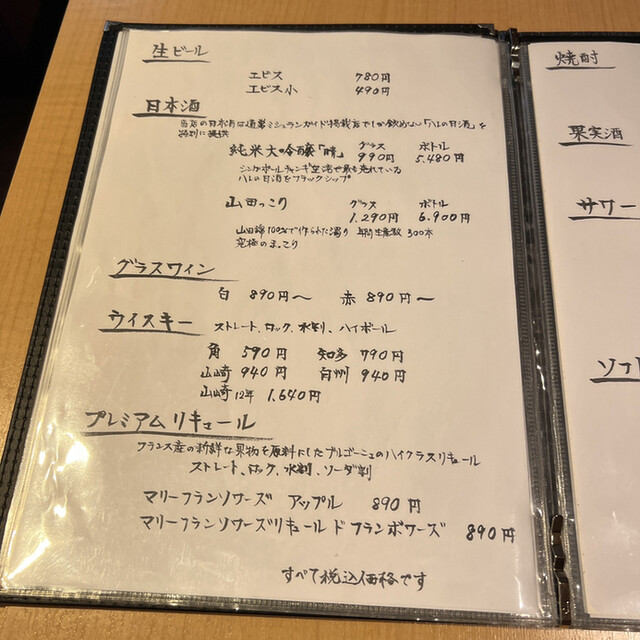 生ビール
エビス 780円
エビス小 490円
日本酒
当店の日本酒は通常ミシュランガイド掲載店でしか飲めない「八いの日酒」を
特別に提供
純米大吟醸「晴」 グラス ボトル
990円 5.480円
シンガポールチャンギ空港で最も売れている
フラッグシップ
山田っこり グラス ボトル
1.290円 6.900円
山田錦100%で作られた濁り 年間生産数 300本
究極のまっこり
グラスワイン
白 890円〜 赤 890円〜
ウイスキー ストレート、ロック、水割、ハイボール
角 590円 知多 790円
山崎 940円 白州 940円
山崎12年 1.640円
プレミアムリキュール
フランス産の新鮮な果物を原料にしたブルゴーニュのハイクラスリキュール
ストレート、ロック、水割、ソーダ割
マリーフランソワーズ アップル 890円
マリーフランソワーズリキュール ド フランボワーズ 890円
すべて税込価格です
焼酎
果実酒
サワー
ソフト